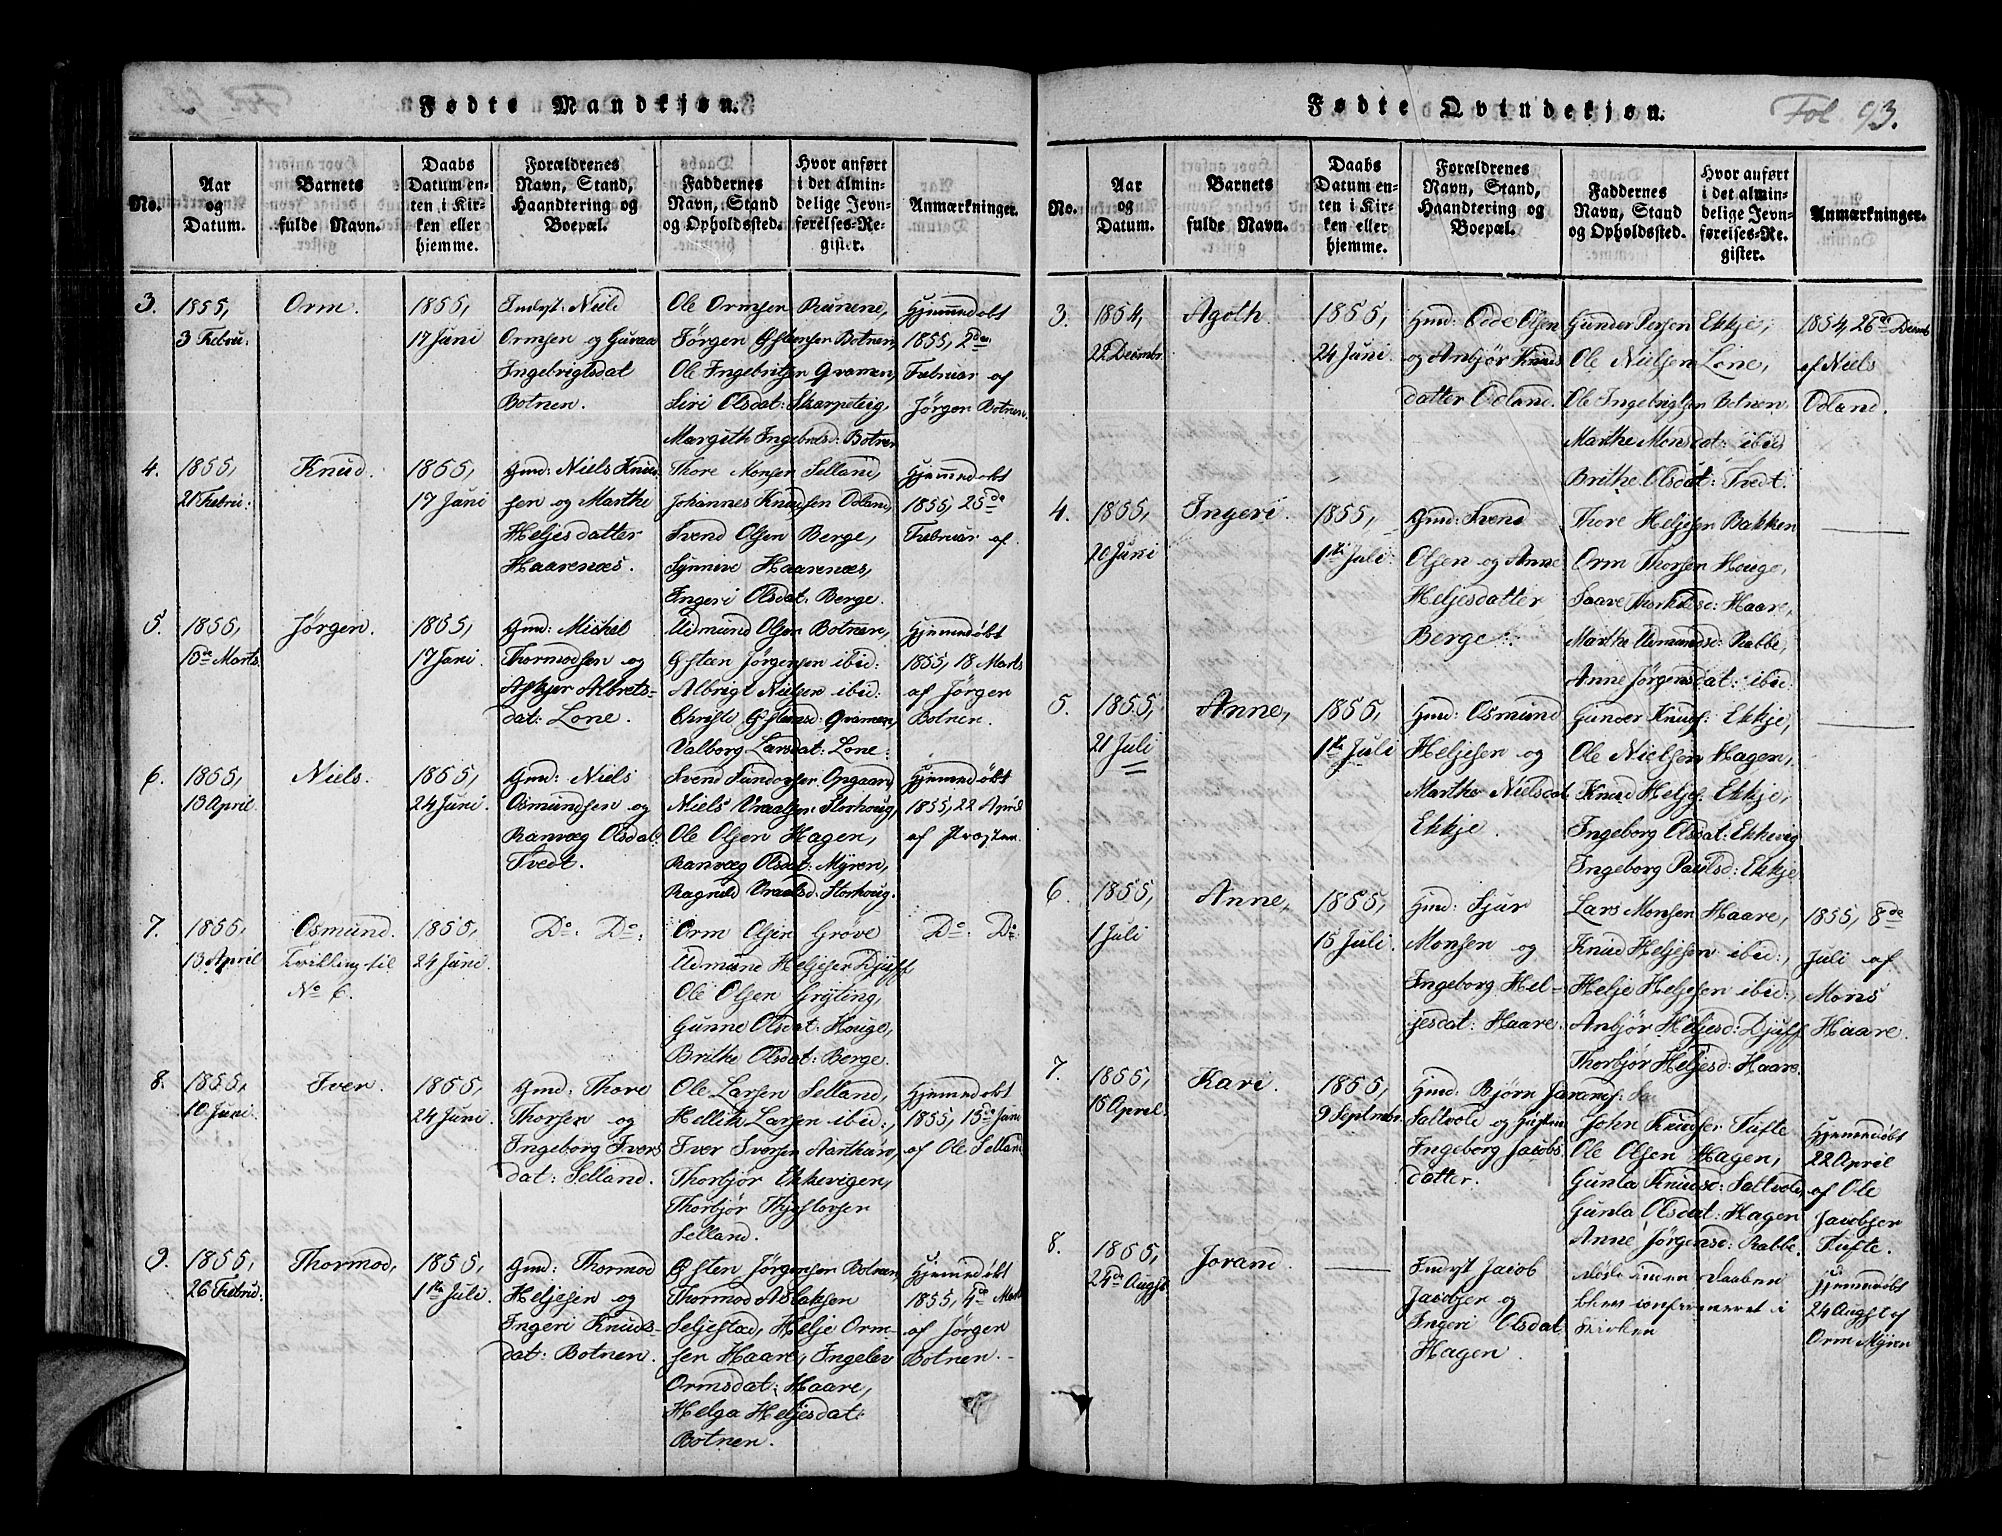 Fødte Mandkjøn.
No.
Aar
og
Datum.
Barnets
fulde Navn.
Daabs
Datum en-
ten i Kir-
ken eller
hjemme.
Forældrenes
Navn, Stand,
Haandtering og
Boepæl.
Faddernes
Navn, Stand
og Opholdssted.
Hvor anført
i det almin-
delige Jevn-
førelses-Re-
gister.
Anmærkninger.
3.
1855,
3 Febru:
Orm.
1855,
17 Juni
Indgt: Niels
Ormsen og Guvaa
Ingebrigtsdat
Botnen.
Ole Ormsen Runene,
Jørgen Gsteensen Botnen,
Ole Ingebritsen Qvamen,
Siri Olsdat: Skarpeteig,
Margith Ingebritsd: Botnen
Hjemmedøbt
1855, 2de
Februar af
Jørgen Botnen.
4.
1855,
21 Febri:
Knud.
1855,
17 Juni
Gmd: Niels Knud
sen og Marthe
Heljesdatter
Haarenæs.
Thore Monsen Selland,
Johannes Knudsen Odland,
Svend Olsen Berge,
Synnive Haarenæs,
Ingeri Olsdat: Berge.
Hjemmedøbt
1855, 25de
Februar af.
5.
1855,
13de Marts.
Jørgen.
1855,
17 Juni.
Gmd: Michel
Thormodsen og
Askjer Albrets-
dat: Lone.
Udmund Olsen Botnen,
Gsteen Jørgensen ibid:
Albrigt Nielsen ibid:
Christi Gsteensd: Qvamen,
Valborg Larsdat: Lone:
Hjemmedøbt
1855, 18 Marts
af Jørgen
Botnen.
6.
1855,
13 April.
Niels.
1855,
24 Juni.
Gmd: Niels
Osmundsen og
Ranvæg Olsdat:
Tvedt.
Svend Sundorsen Opgaard,
Niels Vraalsen Storhoug,
Ole Olsen Hagen,
Ranvæg Olsdat: Myren,
Ragnild Vraalsd: Storhoug.
Hjemmedøbt
1855, 22 April
af Præsten.
7.
1855,
13 April
Osmund.
Tvilling til
No 6.
1855,
24 Juni.
Do: Do:
Orm Olsen Grove
Udmund Heljesen Djuff
Ole Olsen Gryting,
Gunne Olsdat: Houge,
Brithe Olsdat: Berge.
Do: Do:
8.
1855,
10 Juni.
Iver.
1855,
24 Juni.
Gmd: Thore
Thorsen og
Ingeborg Ivers
dat: Selland.
Ole Larsen Selland,
Hellik Larsen ibid:,
Iver Sversen Aarthun,
Thorbjør Ekkevigen,
Thorbjør Thjostovsen
Selland.
Hjemmedøbt
1855, 15de Juni
af Ole Selland
9.
1855,
26 Febrid:
Thormod,
1855,
1ste Juli.
Gmd: Thormod
Heljesen og
Ingeri Knuds-
dat: Botnen.
Gsten Jørgensen Botnen,
Thormod Aslaksen
Seljestad, Helje Orm-
sen Haare, Ingelev
Ormsdat: Haare,
Helga Heljesdat:
Botnen.
Hjemmedøbt
1855, 4de Marts
af Jørgen
Botnen.
Fødte Qvindekjøn.
Fol. 93.
No.
Aar
og
Datum.
Barnets
fulde Navn.
Daabs
Datum en-
ten i Kir-
ken eller
hjemme.
Forældrenes
Navn, Stand,
Haandtering og
Boepæl.
Faddernes
Navn, Stand
og Opholdssted.
Hvor anført
i det almin-
delige Jevn-
førelses-Re-
gister.
Anmærkninger.
3.
1854,
22 Decmbr.
Agoth.
1855,
24 Juni.
Gmd: Odde Olsen
og Anbjør Knuds
datter Odland.
Gunder Persen Ekkje,
Ole Nielsen Lone,
Ole Ingebrigtsen Botnen,
Marthe Monsdat: ibid
Brithe Olsdat: Tvedt.
1854, 26de Decmb
af Niels
Odland.
4.
1855,
20 Juni
Ingeri.
1855,
1ste Juli.
Gmd: Svend
Olsen og Anne
Heljesdatter
Berge.
Thore Heljesen Bakken
Orm Thorsen Houge,
Saave Thorkilsd: Haare,
Marthe Udmundsd: Rabbe,
Anne Jørgensdat: ibid:
5.
1855,
21 Juli
Anne,
1855,
1ste Juli
Gmd: Osmund
Heljesen og
Marthe Nielsdat
Ekkje.
Gunder Knuds: Ekkje,
Ole Nielsen Hagen,
Knud Heljes: Ekkje,
Ingeborg Olsdat: Ekkevig
Ingeborg Paulsd: Ekkje
6.
1855,
1 Juli
Anne,
1855,
15 Juli.
Gmd: Sjur
Monsen og
Ingeborg Hel-
jesdat: Haare.
Lars Monsen Haare,
Knud Heljesen ibid:,
Helje Heljesen ibid:,
Anbjør Heljesd: Djuff
Thorbjør Heljesd: Haare.
1855, 8de
Juli af
Mons
Haare.
7.
1855,
15 April.
Kari.
1855,
9 Septmbr.
Gmd: Bjørn Jarands:
Saltvold og Hustru
Ingeborg Jacobs
datter.
John Knudsen Tufte
Ole Olsen Hagen,
Gunla Knudsd: Saltvold,
Gunla Olsdat: Hagen
Anne Jørgensd: Rabbe.
Hjemmedøbt
22 April
af Ole
Jacobsen
Tufte.
8.
1855,
24de Augst
Jorand.
Indgt Jacob
Jacobsen og
Ingeri Olsdat
Hagen.
Døde inden Daaben
blev confirmeret i
Kirken
Hjemmedøbt
24 Augst af
Orm Myren